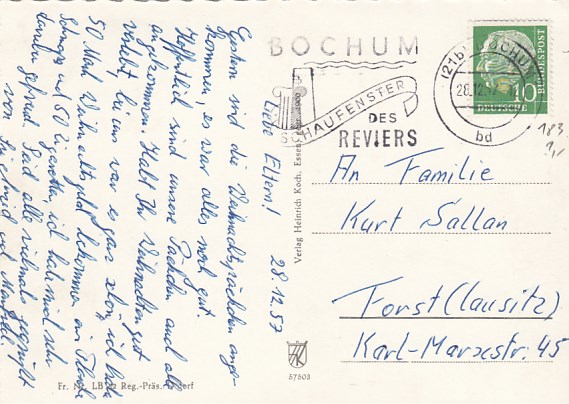 28.12.57
Liebe Eltern!
Gestern sind die Weihnachtspäckchen ange-
kommen, es war alles noch gut.
Hoffentlich sind unsere Päckchen auch alle
angekommen. Habt Ihr Weihnachten gut
verlebt, bei uns war es ganz schön, ich habe
50 Mark Weihnachtsgeld bekommen, eine Flasche
Schnaps und 50 Zigaretten, ich hab mich sehr
darüber gefreut. Seid alle vielmals gegrüßt
von und Manfred
Fr. Nr. LB 22 Reg.-Präs.
Verlag Heinrich Koch, Essen
57503
BOCHUM
SCHAUFENSTER
DES
REVIERS
(21b) BOCHUM
28.12.57
bd
DEUTSCHE
BUNDESPOST
10
183
An Familie
Kurt Sallan
Forst (Lausitz)
Karl-Marxestr. 45